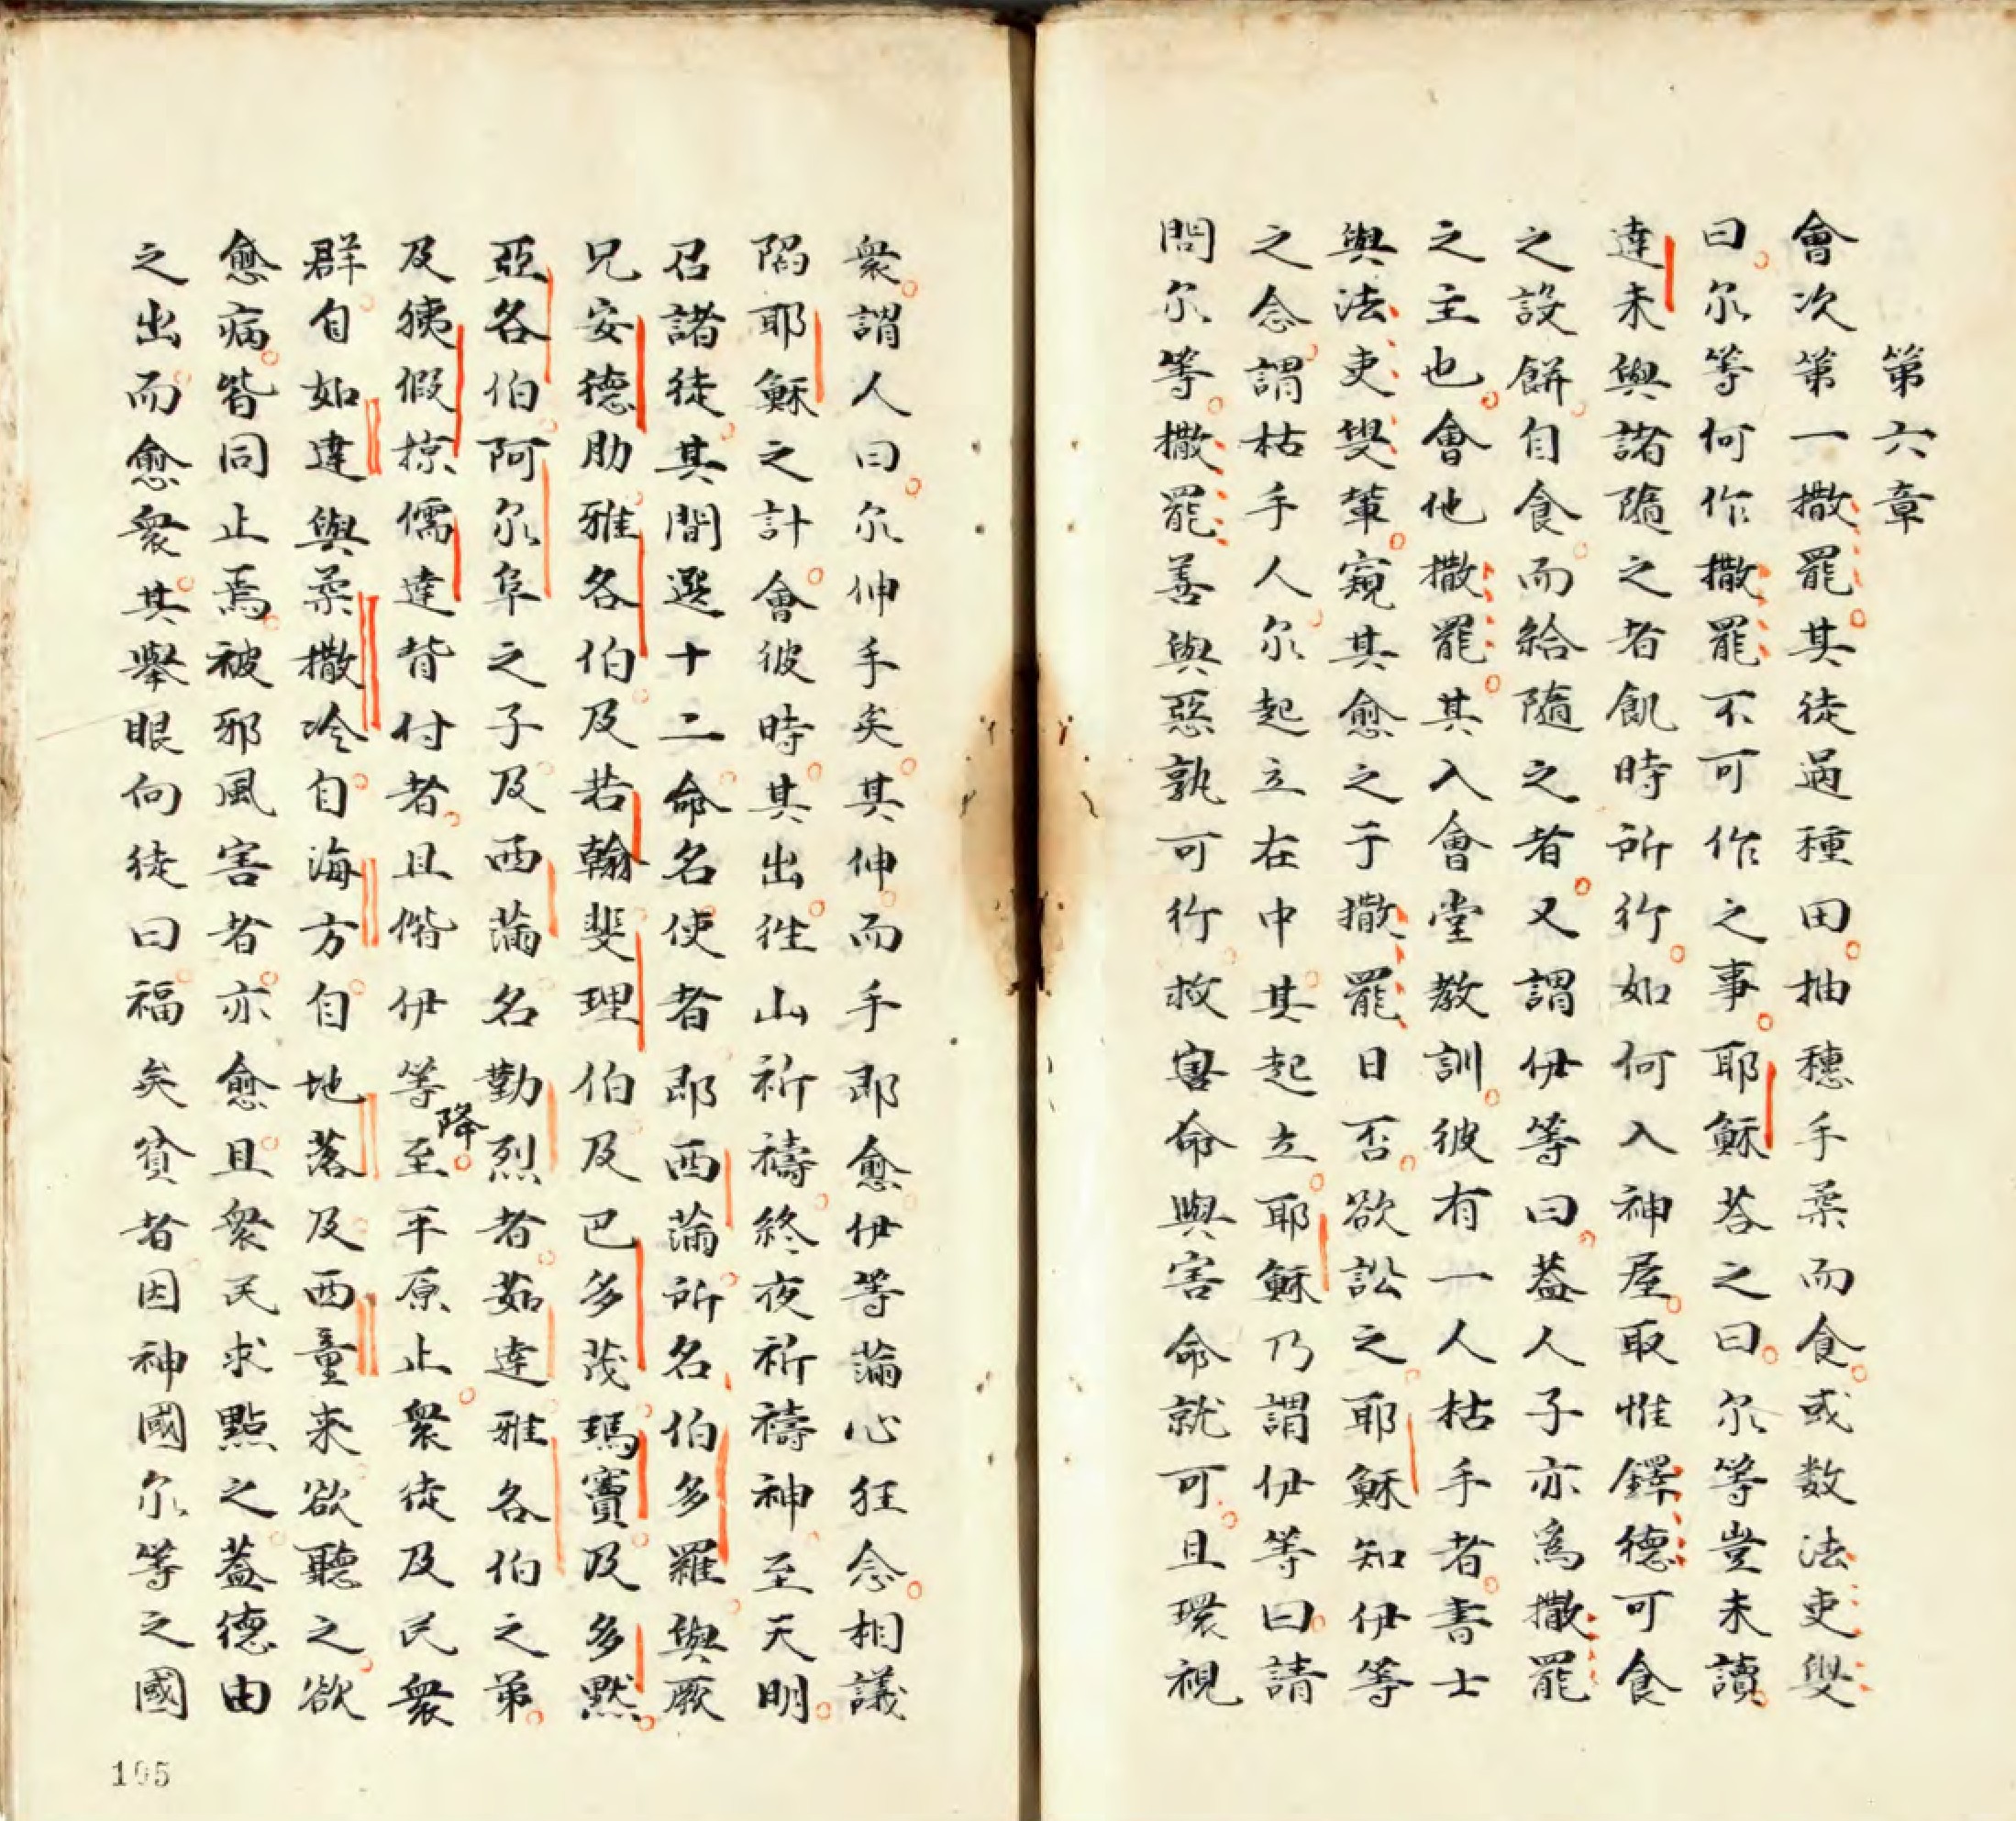 第六章
會次第一撒罷其徒過種田抽穗手柔而食或数法吏㛐
曰尔等何作撒罷不可作之事耶穌荅之曰尔等豈未讀
達未與諸隨之者飢時所行如何入神屋取惟鐸德可食
之設餅自食而給隨之者又謂伊等曰葢人子亦為撒罷
之主也會他撒罷其入會堂教訓彼有一人枯手者書士
與法吏㛐輩窺其愈之于撒罷日否欲訟之耶穌知伊等
之念謂枯手人尔起立在中其起立耶穌乃謂伊等曰請
問尔等撒罷善與惡孰可行救害命與害命就可且環視
衆謂人曰尔伸手矣其伸而手即愈伊等滿心狂念相議
陷耶穌之計會彼時其出徃山祈禱終夜祈禱神至天明
召諸徒其間選十二命名使者即西滿所名伯多羅與厥
兄安德肋雅各伯及若翰斐理伯及巴多茂瑪竇及多默
亞各伯阿尔阜之子及西滿名勤烈者茹達雅各伯之弟
及㺿假掠儒達背付者且偕伊等降至平原止衆徒及民衆
群自如達與柔撒冷自海方自地落及西童来欲聽之欲
愈病皆同止焉被邪風害者亦愈且衆民求點之葢德由
之出而愈衆其舉眼向徒曰福矣貧者因神國尔等之國
105